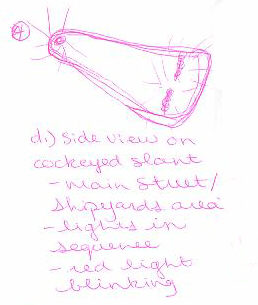 4
d.) Side view on
cockeyed slant
- main Street/
Shipyards area
- lights in
sequence
- red light
blinking